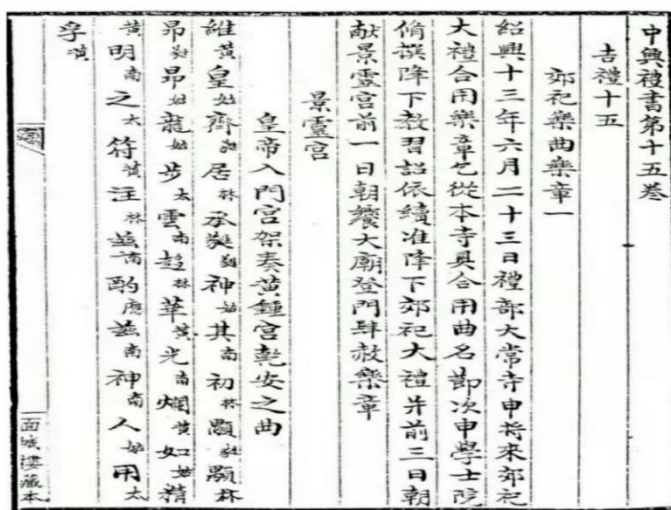 中興禮書第十五卷
吉禮十五
郊祀樂曲樂章一
紹興十三年六月二十三日禮部大常寺申將來郊祀
大禮合用樂章乞從本寺具合用曲名節次申學士院
脩撰降下教習詔依續准降下郊祀大禮并前三日朝
献景靈宮前一日朝饗大廟登門肆赦樂章
景靈宮
皇帝入門宮架奏黃鍾宮乾安之曲
維黃皇姑齊㽔居林承㽔神姑其南初林顯㽔顯林
昂㽔昂姑龍姑步太雲南趍林華黃光南爛黃如姑精
黃明南之太符黃注林茲南酌應茲南神南人姑用太
孚黃
面城樓藏本